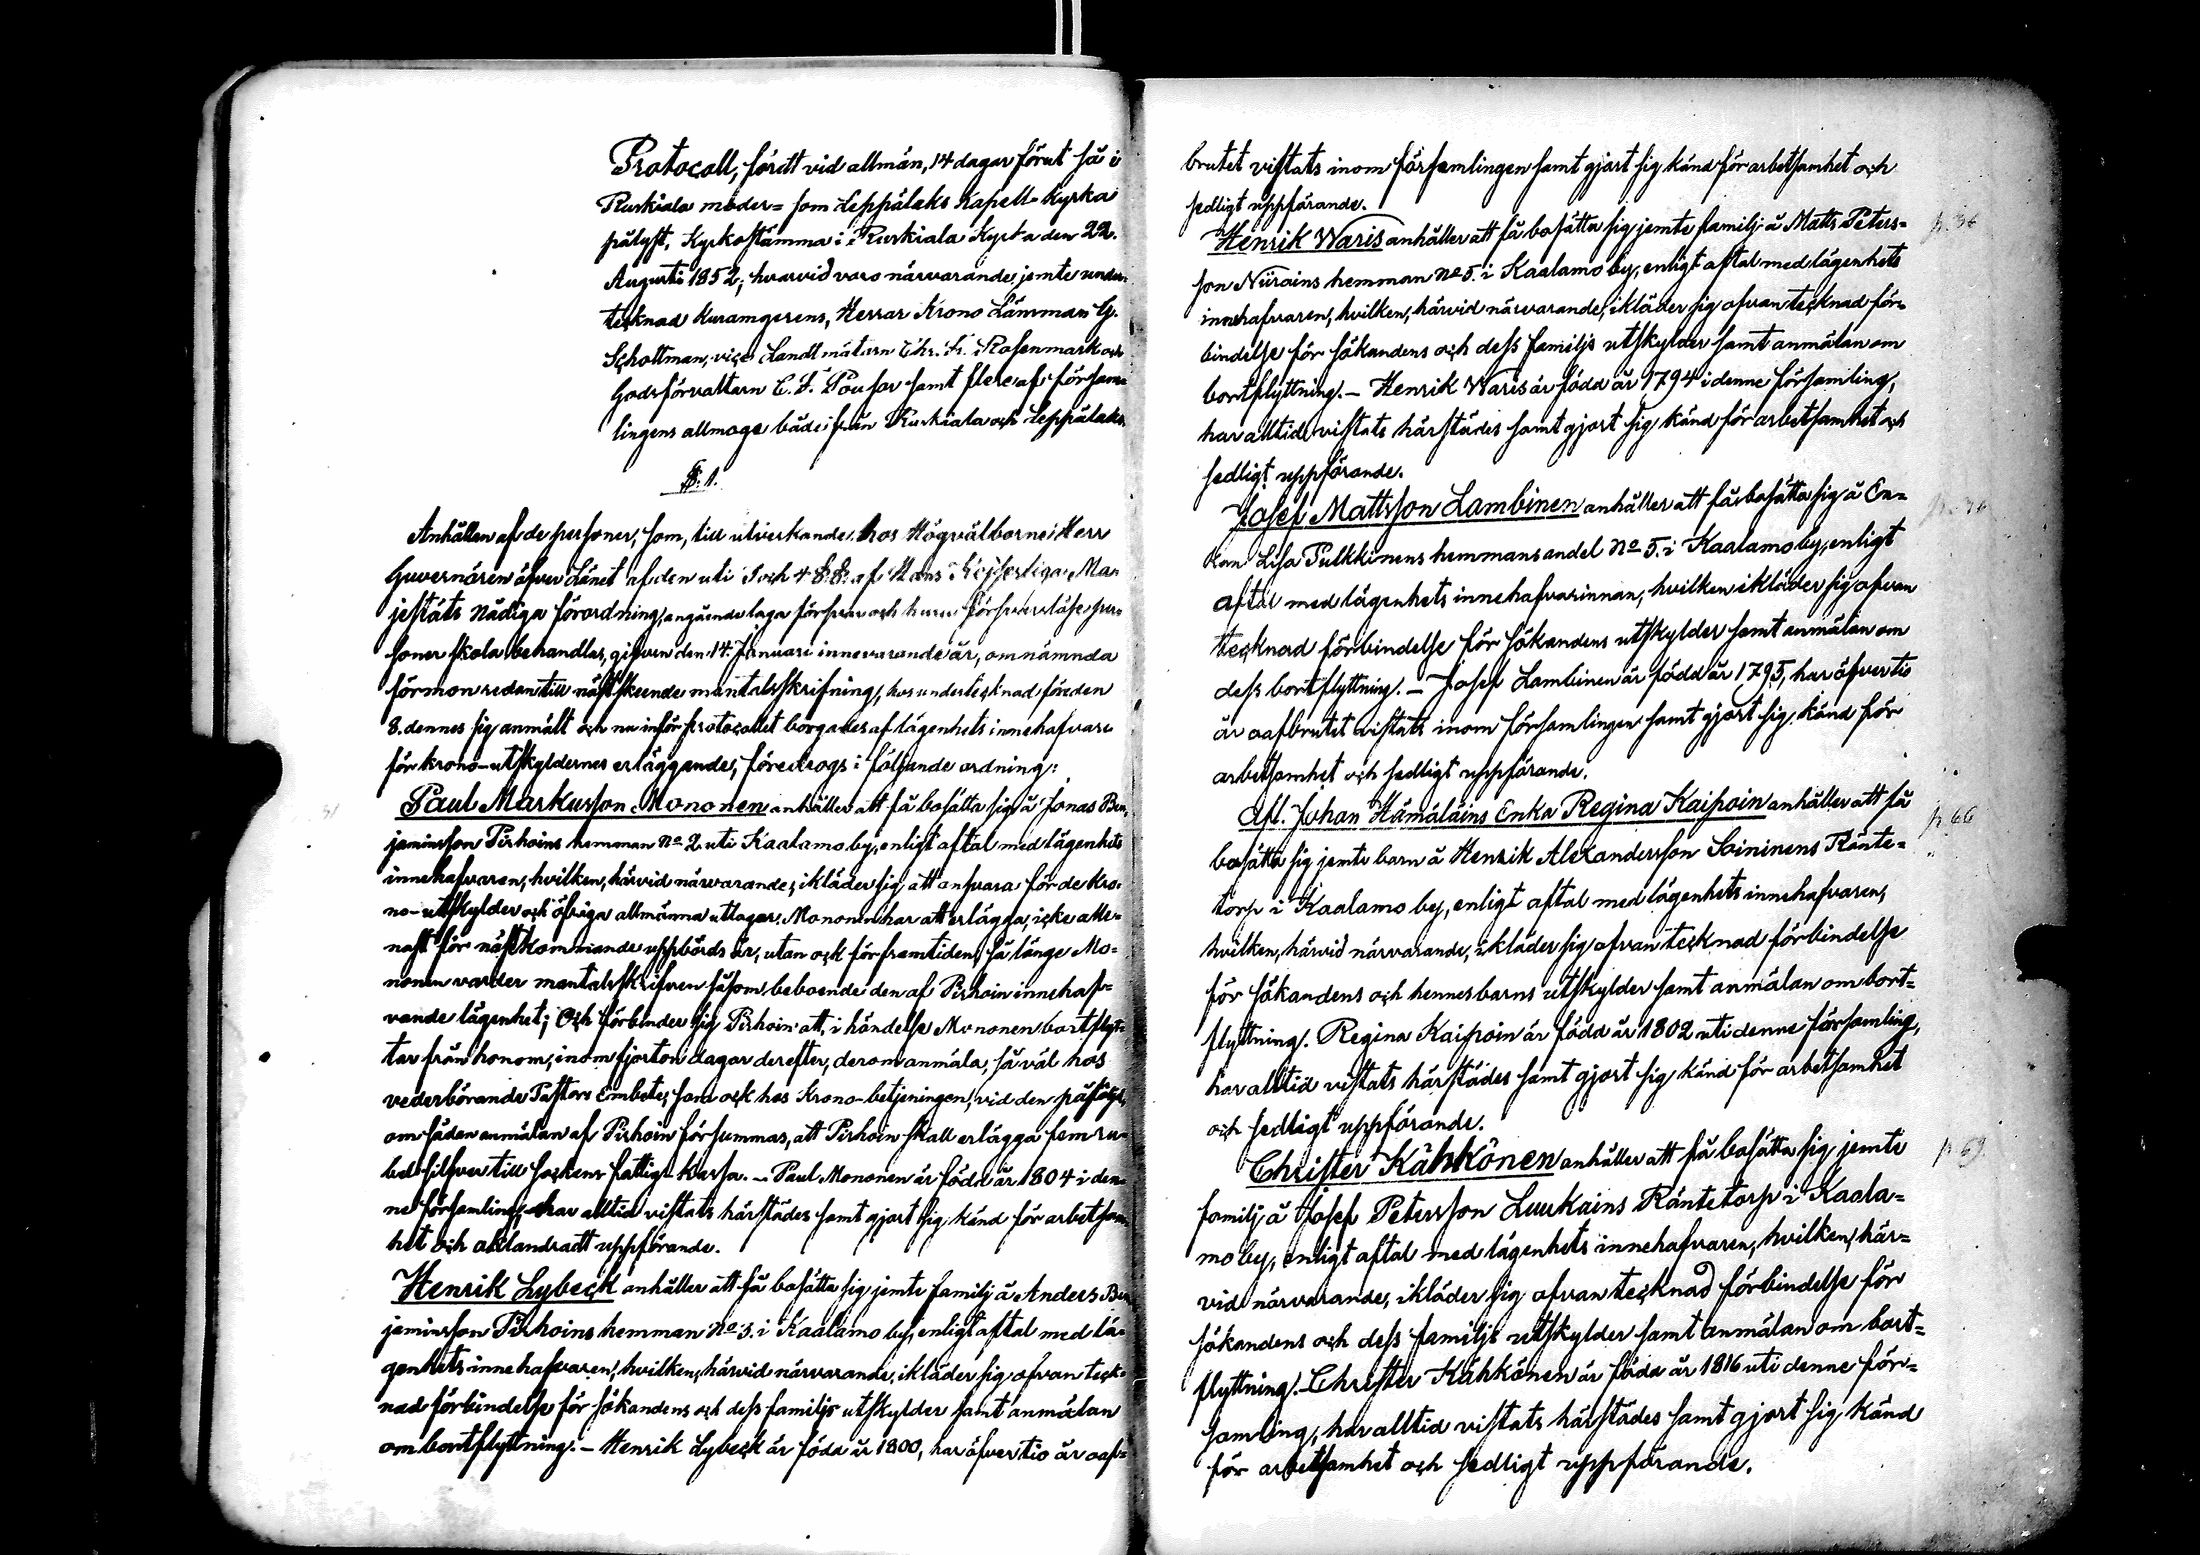 Protocoll, fördt vid allmän, 14 dagar förut så i
Ruskiala moder= som Leppälaks Kapell-Kyrka
pålyst, Kyrkostämma i Ruskiala Kyrka den 22.
Augusti 1852; hvarvid voro närvarande, jemte under-
tecknad Herrar Krono Länsman G.
Schottman, vice Landtmätarn Chr. Fr. Rosenmark och
Godsförvaltarn C. F. samt flere af försam-
lingens allmoge både från Ruskiala och Leppälaks.
§. 1.
Anhållan af de personer, som, till utverkande hos Högvälborne Herr
Guvernören öfver Länet af den uti 3 och 4 §.§. af Hans Kejserliga Ma-
jestäts Nådiga förordning, angående laga försvar och huru försvarslöse per-
soner skola behandlas, gifven den 14. Januari innevarande år, omnämnda
förmon redan till nästskeende mantalsskrifning, hos undertecknad före den
8. dennes sig anmält och nu inför protocollet borgades af lägenhets innehafvare
för krono-utskyldernes erläggande, föredrogs i följande ordning:
Paul Markusson Mononen anhåller att få bosätta sig å Jonas Ben-
jaminsson Pirhoins hemman No 2 uti Kaalamo by, enligt aftal med lägenhets
innehafvaren, hvilken, härvid närvarande, ikläder sig att ansvara för de Kro-
no-utskylder och öfriga allmänna utlagor Mononen har att erlägga, icke alle-
nast för nästkommande uppbörds år, utan ock för framtiden, så länge Mo-
nonen varder mantalsskrifven såsom beboende den af Pirhoin innehaf-
vande lägenhet; Och förbinder sig Pirhoin att, i händelse Mononen bortflyt-
tar från honom, inom fjorton dagar derefter, derom anmäla, så väl hos
vederbörande Pastors Embete, som ock hos Krono-betjeningen, vid den påföljd,
om sådan anmälan af Pirhoin försummas, att Pirhoin skall erlägga fem ru-
bel silfver till sockens fattig-kassa. – Paul Mononen är född år 1804 i den-
na församling, har alltid vistats härstädes samt gjort sig känd för arbetsam-
het och oklandradt uppförande.
Henrik Lybeck anhåller att få bosätta sig jemte familj å Anders Ben-
jaminsson Pirhoins hemman No 3. i Kaalamo by, enligt aftal med lä-
genhets innehafvaren, hvilken, härvid närvarande, ikläder sig ofvan teck-
nad förbindelse för sökandens och dess familjs utskylder samt anmälan
om bortflyttning. – Henrik Lybeck är född år 1800, har öfver tio år oaf-
brutet vistats inom församlingen samt gjort sig känd för arbetsamhet och
sedligt uppförande.
Henrik Waris anhåller att få bosätta sig jemte familj å Matts Peters-
son Niirains hemman No 5. i Kaalamo by, enligt aftal med lägenhets
innehafvaren, hvilken, härvid närvarande, ikläder sig ofvan tecknad för-
bindelse för sökandens och dess familjs utskylder samt anmälan om
bortflyttning. – Henrik Waris är född år 1794 i denne församling,
har alltid vistats härstädes samt gjort sig känd för arbetsamhet och
sedligt uppförande.
p. 36
Josef Mattsson Lambinen anhåller att få bosätta sig å En-
kan Lisa Pulkkinens hemmansandel No 5. i Kaalamo by, enligt
aftal med lägenhets innehafvarinnan, hvilken ikläder sig ofvan
tecknad förbindelse för sökandens utskylder samt anmälan om
dess bortflyttning. – Josef Lambinen är född år 1795, har öfver tio
år oafbrutet vistats inom församlingen samt gjort sig känd för
arbetsamhet och sedligt uppförande.
Afl. Johan Hämäläins Enka Regina Kaipoin anhåller att få
bosätta sig jemte barn å Henrik Alexandersson Soininens Ränte-
torp i Kaalamo by, enligt aftal med lägenhets innehafvaren,
hvilken, härvid närvarande, ikläder sig ofvan tecknad förbindelse
för sökandens och hennes barns utskylder samt anmälan om bort-
flyttning. Regina Kaipoin är född år 1802 uti denne församling,
har alltid vistats härstädes samt gjort sig känd för arbetsamhet
och sedligt uppförande.
p. 66
Christer Kähkönen anhåller att få bosätta sig jemte
familj å Josef Petersson Luukains Räntetorp i Kaala-
mo by, enligt aftal med lägenhets innehafvaren, hvilken, här-
vid närvarande, ikläder sig ofvan tecknad förbindelse för
sökandens och dess familjs utskylder samt anmälan om bort-
flyttning. – Christer Kähkönen är född år 1816 uti denne för-
samling, har alltid vistats härstädes samt gjort sig känd
för arbetsamhet och sedligt uppförande.
p. 69.